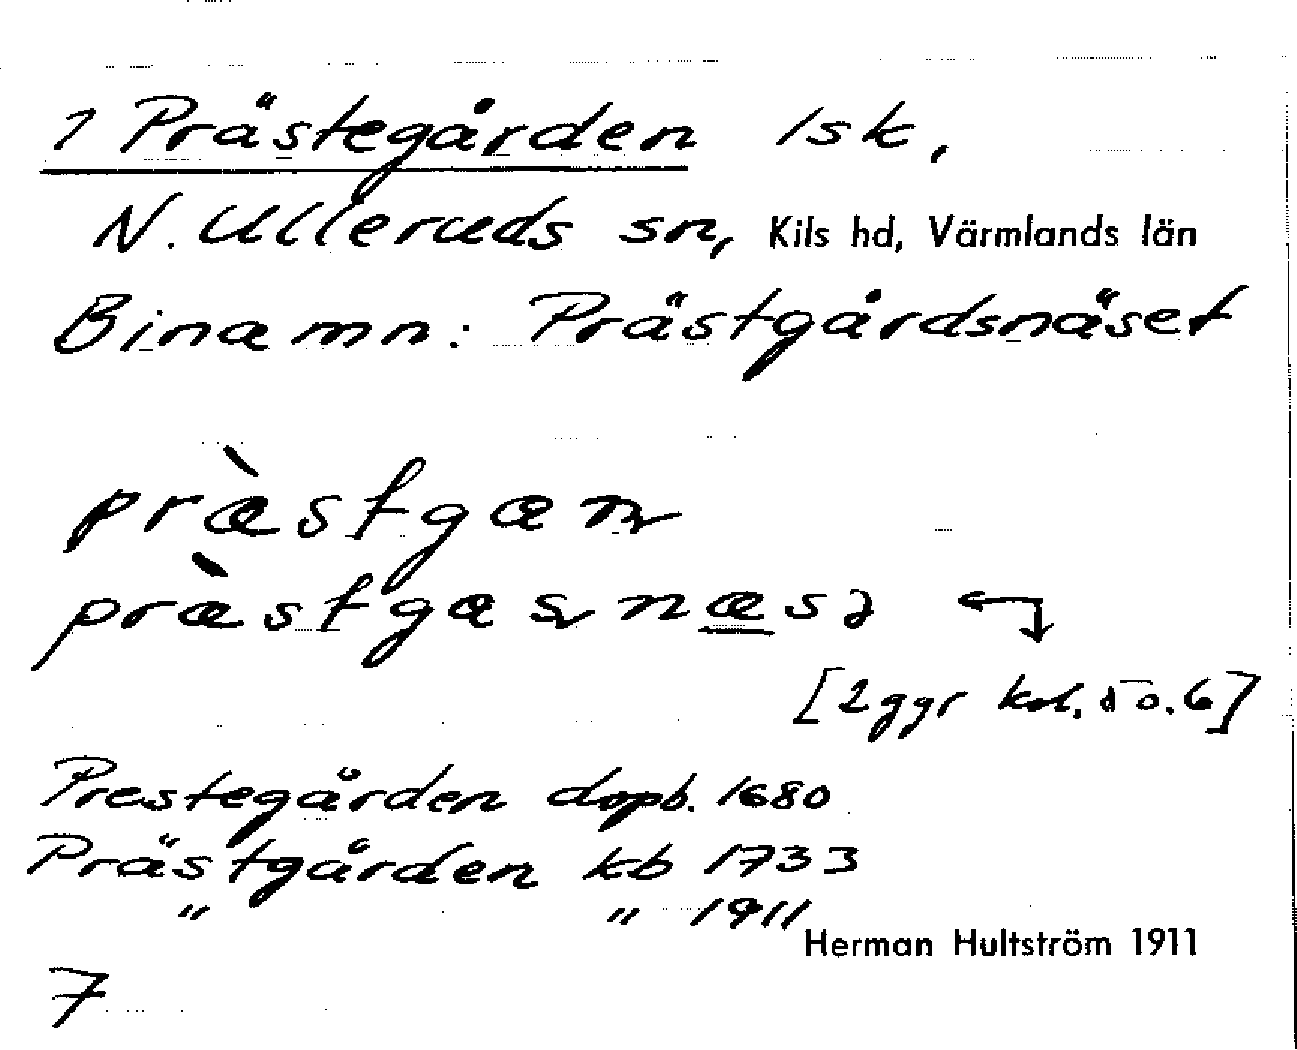 1 Prästegården 1sk,
N. Ulleruds sn, Kils hd, Värmlands län
Binamn: Prästgårdsnäset
præ̀stgan
præ̀stgasnæsə
[2 ggr
Prestegården dopb. 1680
Prästgården kb 1733
" " 1911
Herman Hultström 1911
7